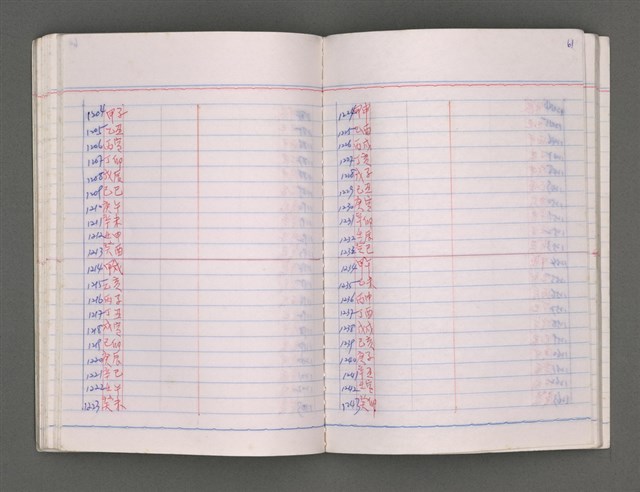 1204 甲子
1205 乙丑
1206 丙寅
1207 丁卯
1208 戊辰
1209 己巳
1210 庚午
1211 辛未
1212 壬申
1213 癸酉
1214 甲戌
1215 乙亥
1216 丙子
1217 丁丑
1218 戊寅
1219 己卯
1220 庚辰
1221 辛巳
1222 壬午
1223 癸未
61
1224 甲申
1225 乙酉
1226 丙戌
1227 丁亥
1228 戊子
1229 己丑
1230 庚寅
1231 辛卯
1232 壬辰
1233 癸巳
1234 甲午
1235 乙未
1236 丙申
1237 丁酉
1238 戊戌
1239 己亥
1240 庚子
1241 辛丑
1242 壬寅
1243 癸卯